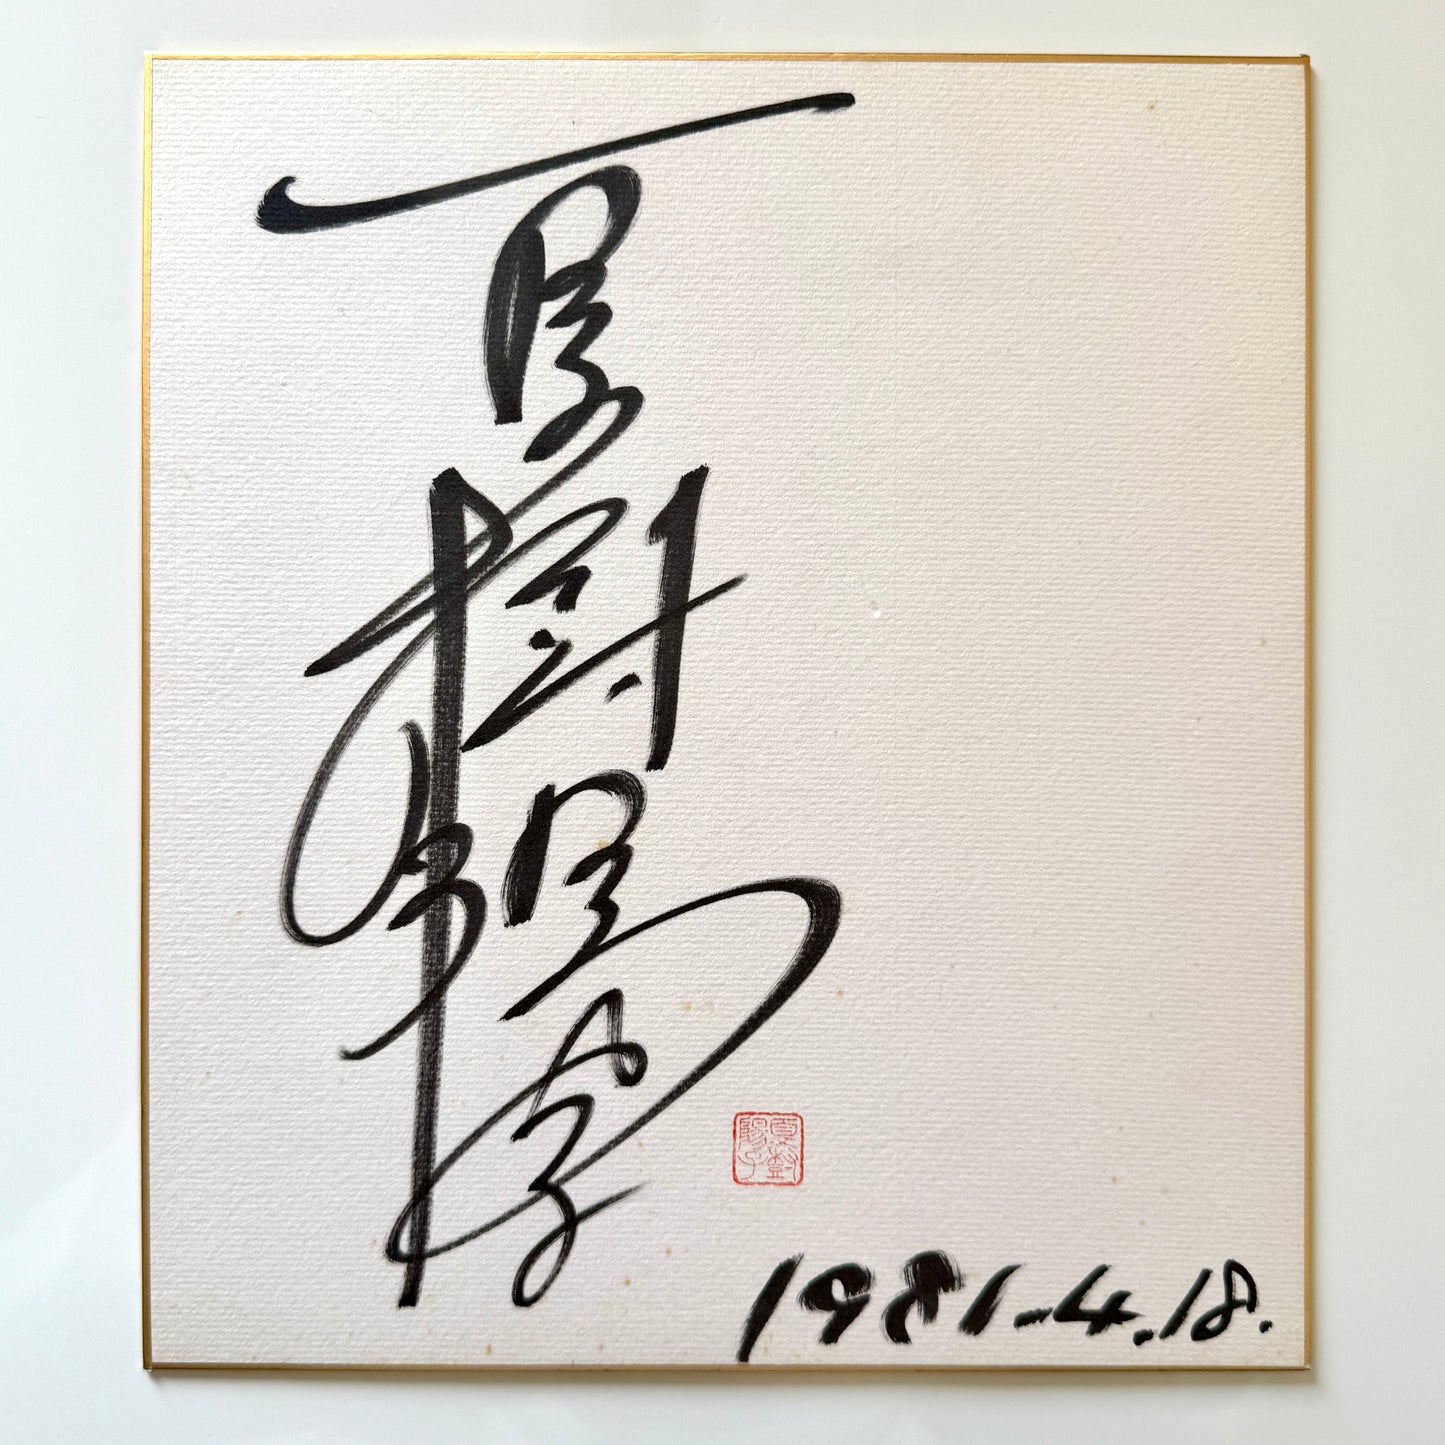 夏樹陽子
夏樹
陽子
1981-4.18.